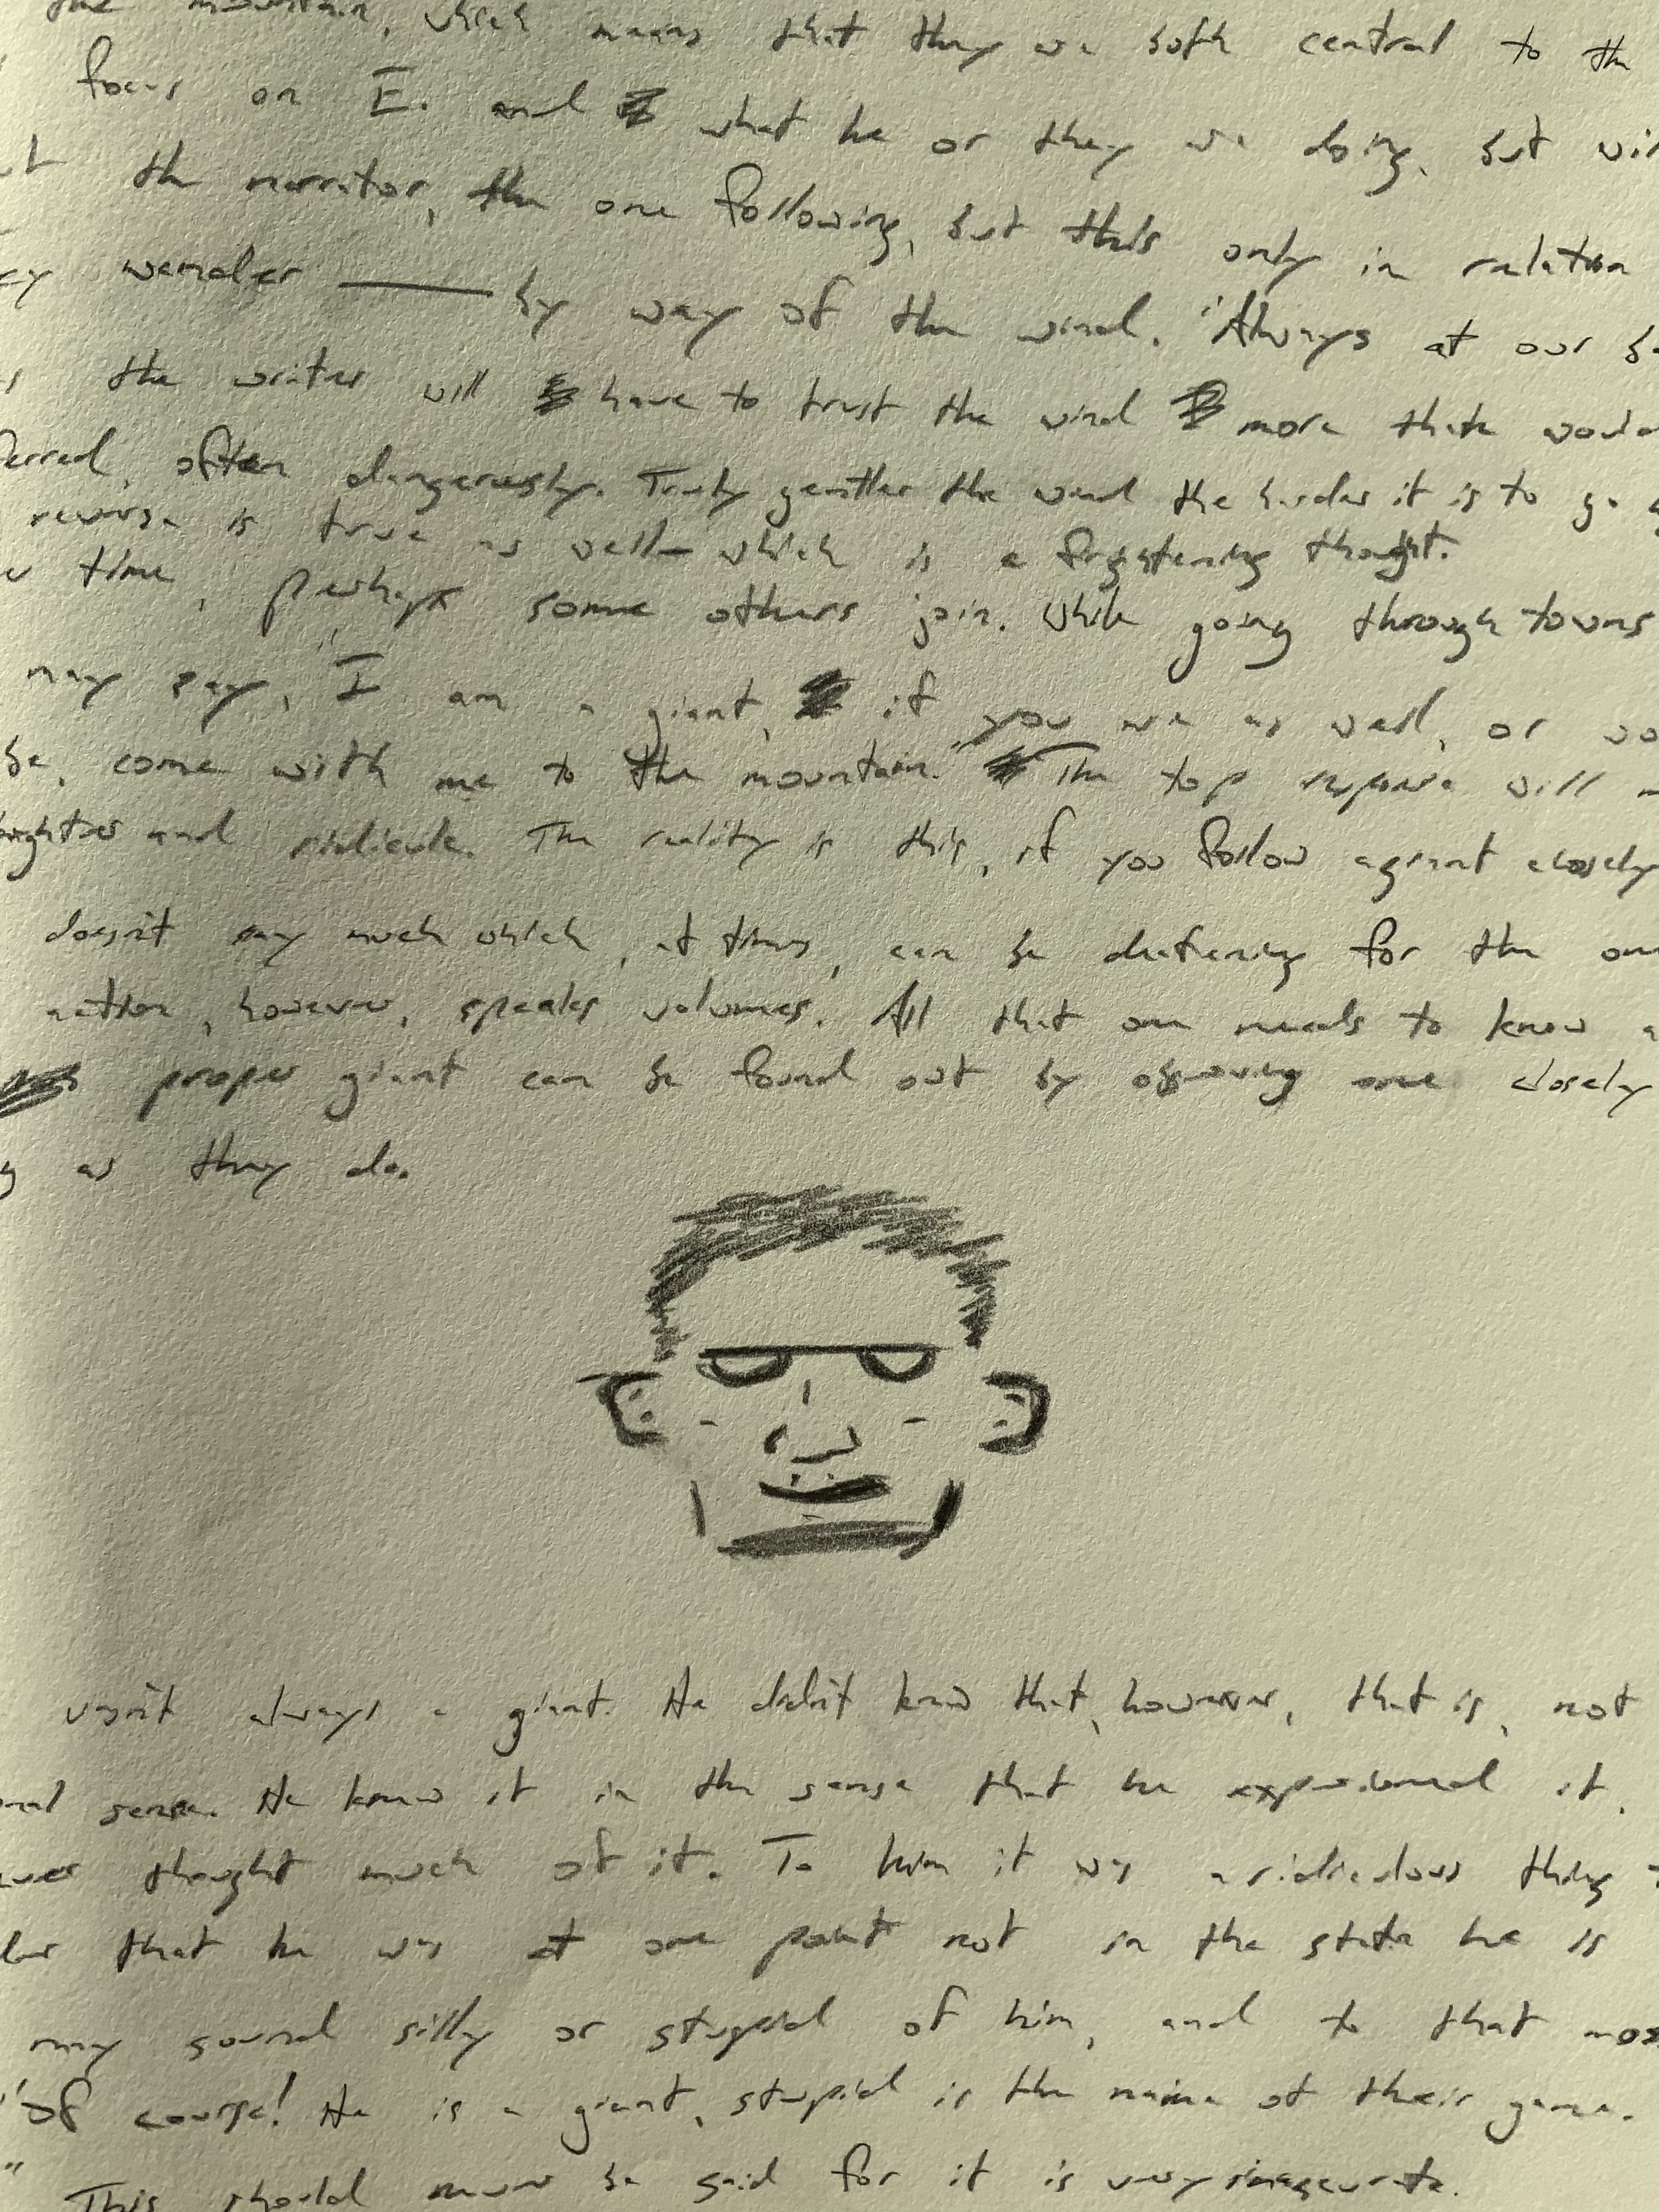 the mountain, which means that they are both central to the
focus on E. and what he or they are doing, but
the narrator, the one following, but this only in relation
wander — by way of the wind. "Always at our
the writer will have to trust the wind more than would
often dangerously. Truly gentler the wind the harder it is to go
reverse is true as well— which is a frightening thought.
time, perhaps some others join. While going through towns
may say, "I am a giant, if you are as well, or
be, come with me to the mountain." The top response will
and ridicule. The reality is this, if you follow a giant closely
doesn't say much which, at times, can be deafening for the
action, however, speaks volumes. All that one needs to know
proper giant can be found out by observing one closely
as they do.
wasn't always a giant. He didn't know that, however, that is, not
sense. He knew it in the sense that he experienced it.
thought much of it. To him it was a ridiculous thing
that he was at one point not in the state he is
may sound silly or stupid of him, and to that
"Of course! He is a giant, stupid is the name of their game.
" This should never be said for it is very inaccurate.